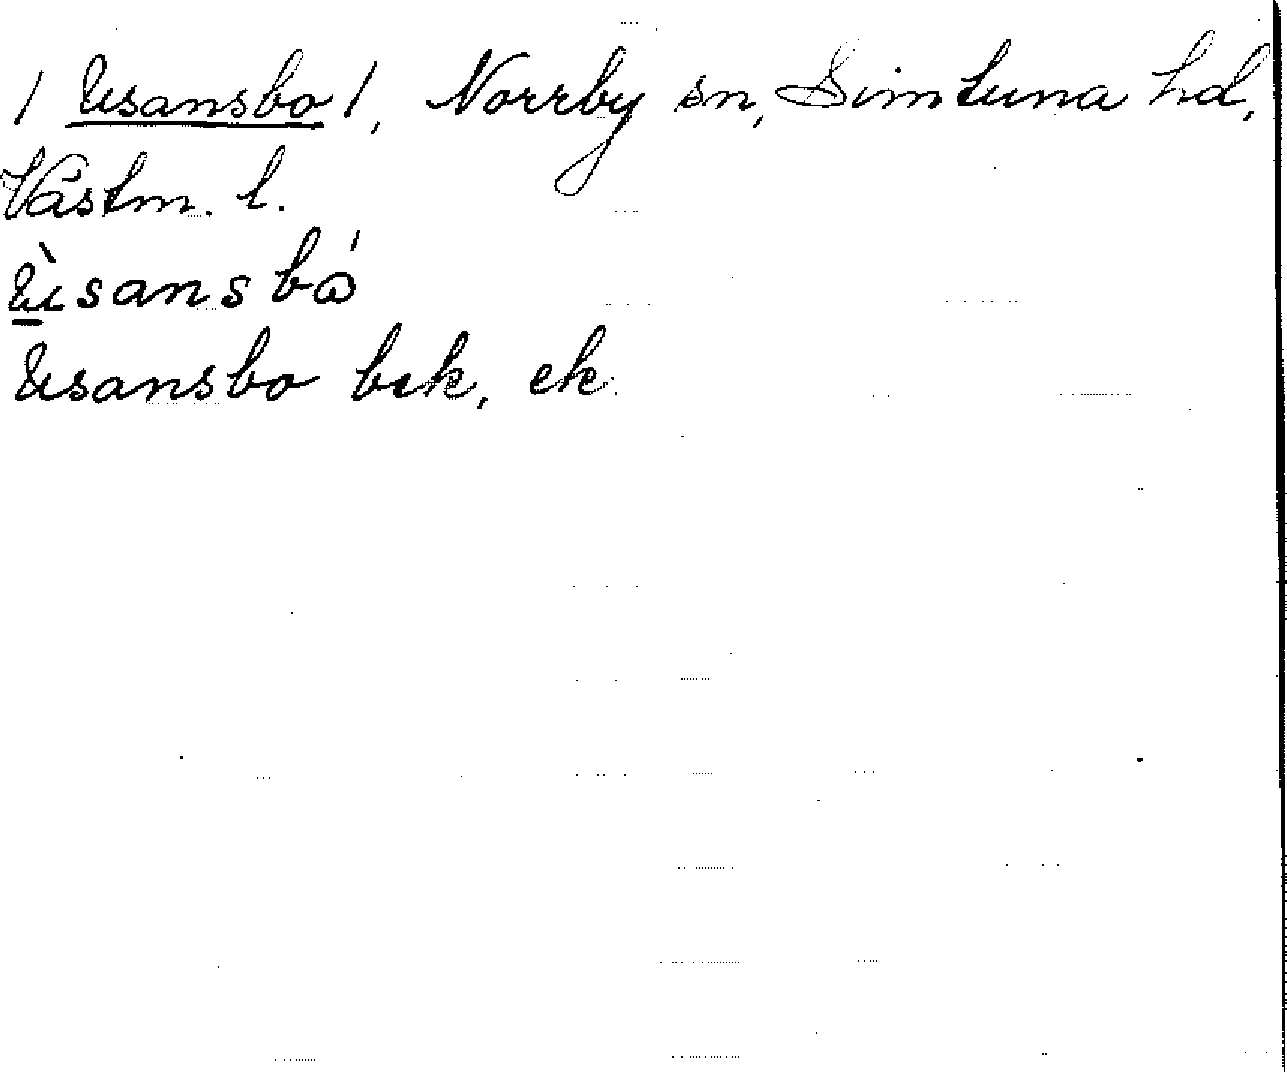 / Usansbo /, Norrby sn, Simtuna hd,
Västm. l.
Ùsansbó
Usansbo bek, ek.